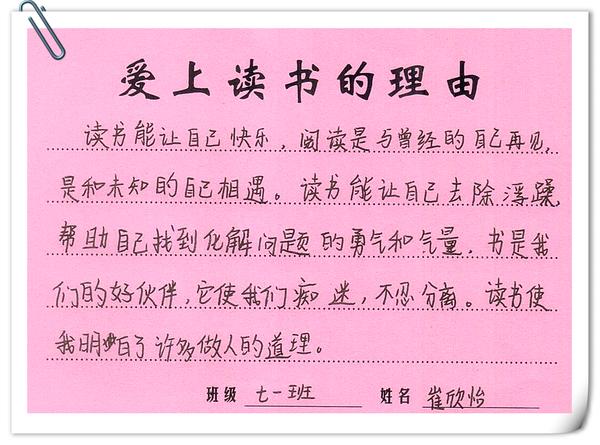 爱上读书的理由
读书能让自己快乐，阅读是与曾经的自己再见，
是和未知的自己相遇。读书能让自己去除浮躁，
帮助自己找到化解问题的勇气和气量，书是我
们的好伙伴，它使我们痴迷，不忍分离。读书使
我明白了许多做人的道理。
班级 七一班 姓名 崔欣怡